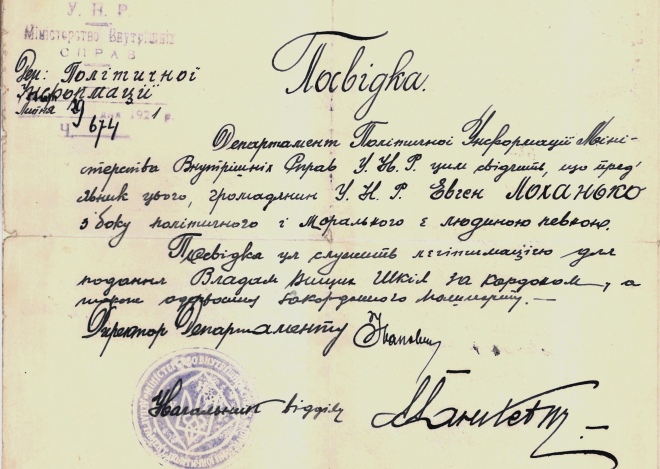 У. Н. Р.
Міністерство Внутрішніх
СПРАВ
Деп: Політичної
Інформації
Липня 29 дня 1921 р.
Ч. 674
Посвідка.
Департамент Політичної Інформації Міні-
стерства Внутрішніх Справ У. Н. Р. цим свідчить, що пред'
явник цього, громадянин У. Н. Р. Евген Лоханько
з боку політичного і морального є людиною певною.
Посвідка ця служить легітимацією для
подання Владам Вищих Шкіл за кордоном, а
також одержання закордонного
Директор Департаменту
Начальник відділу